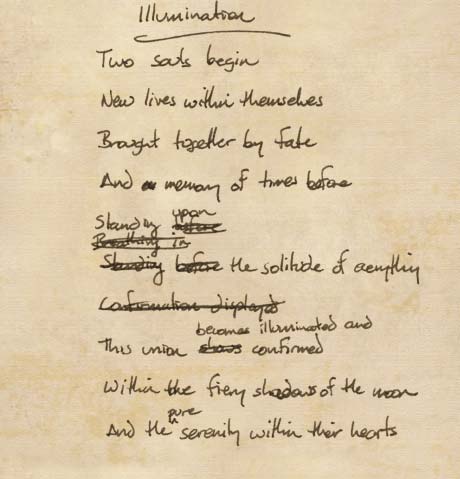 Illumination
Two souls begin
New lives within themselves
Brought together by fate
And a memory of times before
Standing upon before
Breathing in
Standing before the solitude of
Confirmation displayed
becomes illuminated and
This union shows confirmed
Within the fiery shadows of the moon
pure
And the serenity within their hearts